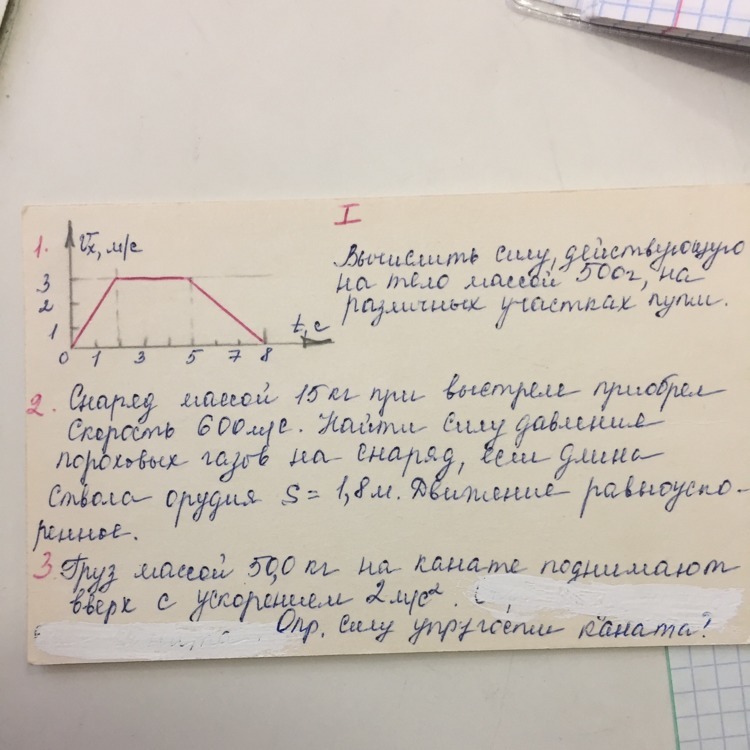 I
1. Vx, м/с
3
2
1
0 1 3 5 7 8
t, с
Вычислить силу, действующую
на тело массой 500г, на
различных участках пути.
2. Снаряд массой 15кг при выстреле приобрел
скорость 600м/с. Найти силу давления
пороховых газов на снаряд, если длина
ствола орудия S = 1,8м. Движение равноуско-
ренное.
3 Груз массой 50,0 кг на канате поднимают
вверх с ускорением 2м/с².
Опр. силу упругости каната?